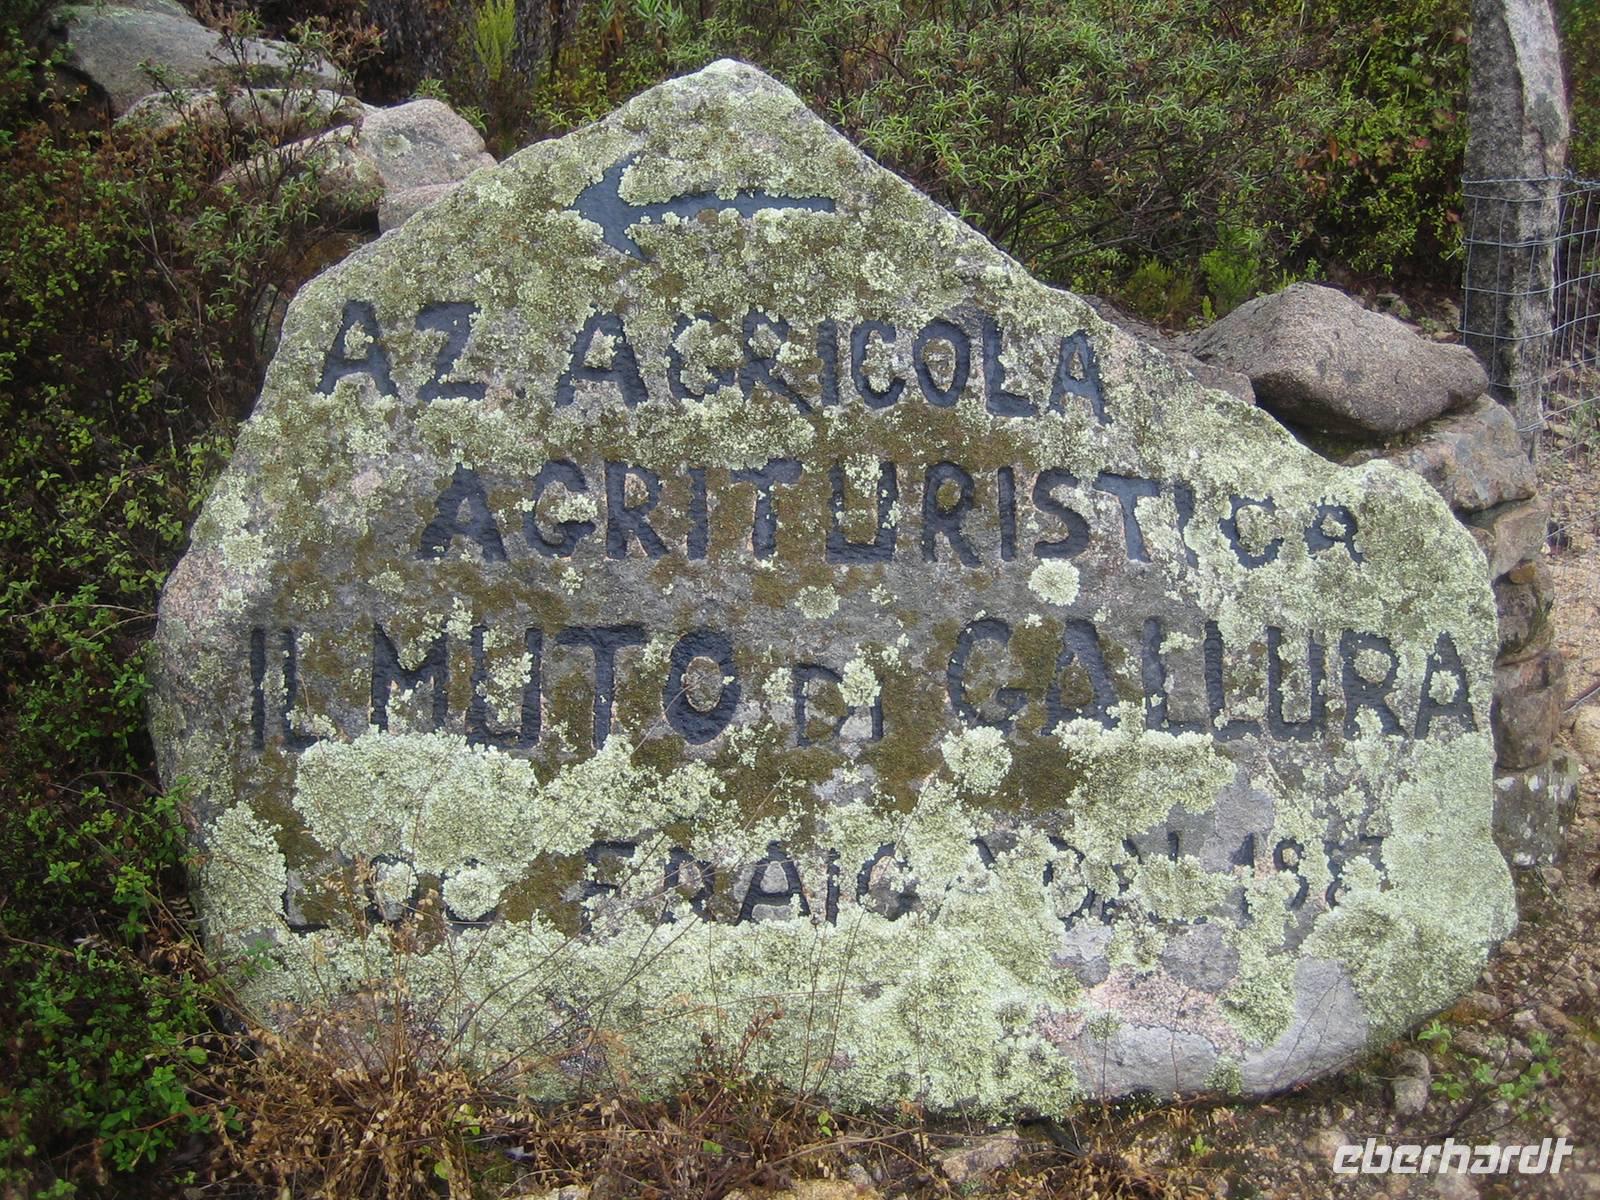 AZ. AGRICOLA
AGRITURISTICA
IL MUTO DI GALLURA
LOC FRAIGA DAL
eberhardt